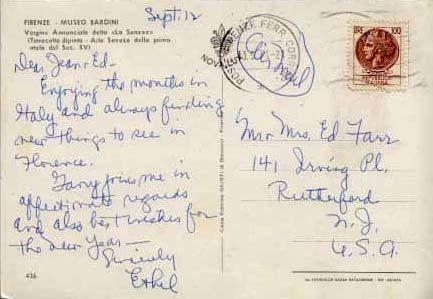 Sept. 12
FIRENZE - MUSEO BARDINI
Vergine Annunciata detta «La Senese»
(Terracotta dipinta - Arte Senese della prima
metà del Sec. XV)
Dear Jean & Ed -
Enjoying the months in
Italy and always finding
new things to see in
Florence.
joins me in
affectionate regards
and also best wishes for
the new Year —
Sincerely
Ethel
436
Air Mail
FERR. COR
LIRE 100
Mr Mrs. Ed Farr
141 Irving Pl.
Rutherford
N. J.
U. S. A.